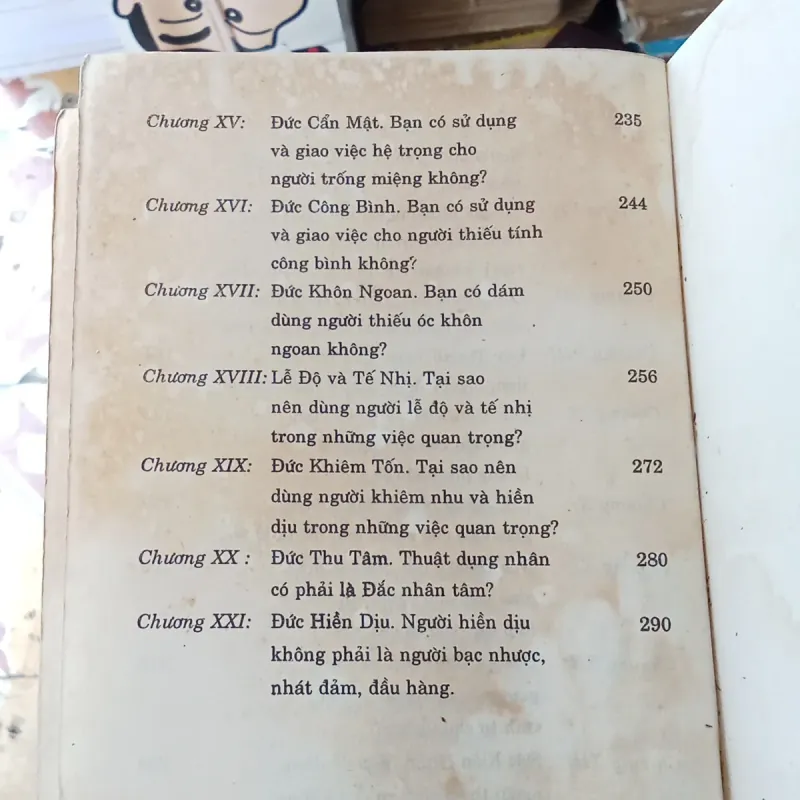 Chương XV: Đức Cẩn Mật. Bạn có sử dụng 235
và giao việc hệ trọng cho
người trống miệng không?
Chương XVI: Đức Công Bình. Bạn có sử dụng 244
và giao việc cho người thiếu tính
công bình không?
Chương XVII: Đức Khôn Ngoan. Bạn có dám 250
dùng người thiếu óc khôn
ngoan không?
Chương XVIII: Lễ Độ và Tế Nhị. Tại sao 256
nên dùng người lễ độ và tế nhị
trong những việc quan trọng?
Chương XIX: Đức Khiêm Tốn. Tại sao nên 272
dùng người khiêm nhu và hiền
dịu trong những việc quan trọng?
Chương XX : Đức Thu Tâm. Thuật dụng nhân 280
có phải là Đắc nhân tâm?
Chương XXI: Đức Hiền Dịu. Người hiền dịu 290
không phải là người bạc nhược,
nhát đảm, đầu hàng.